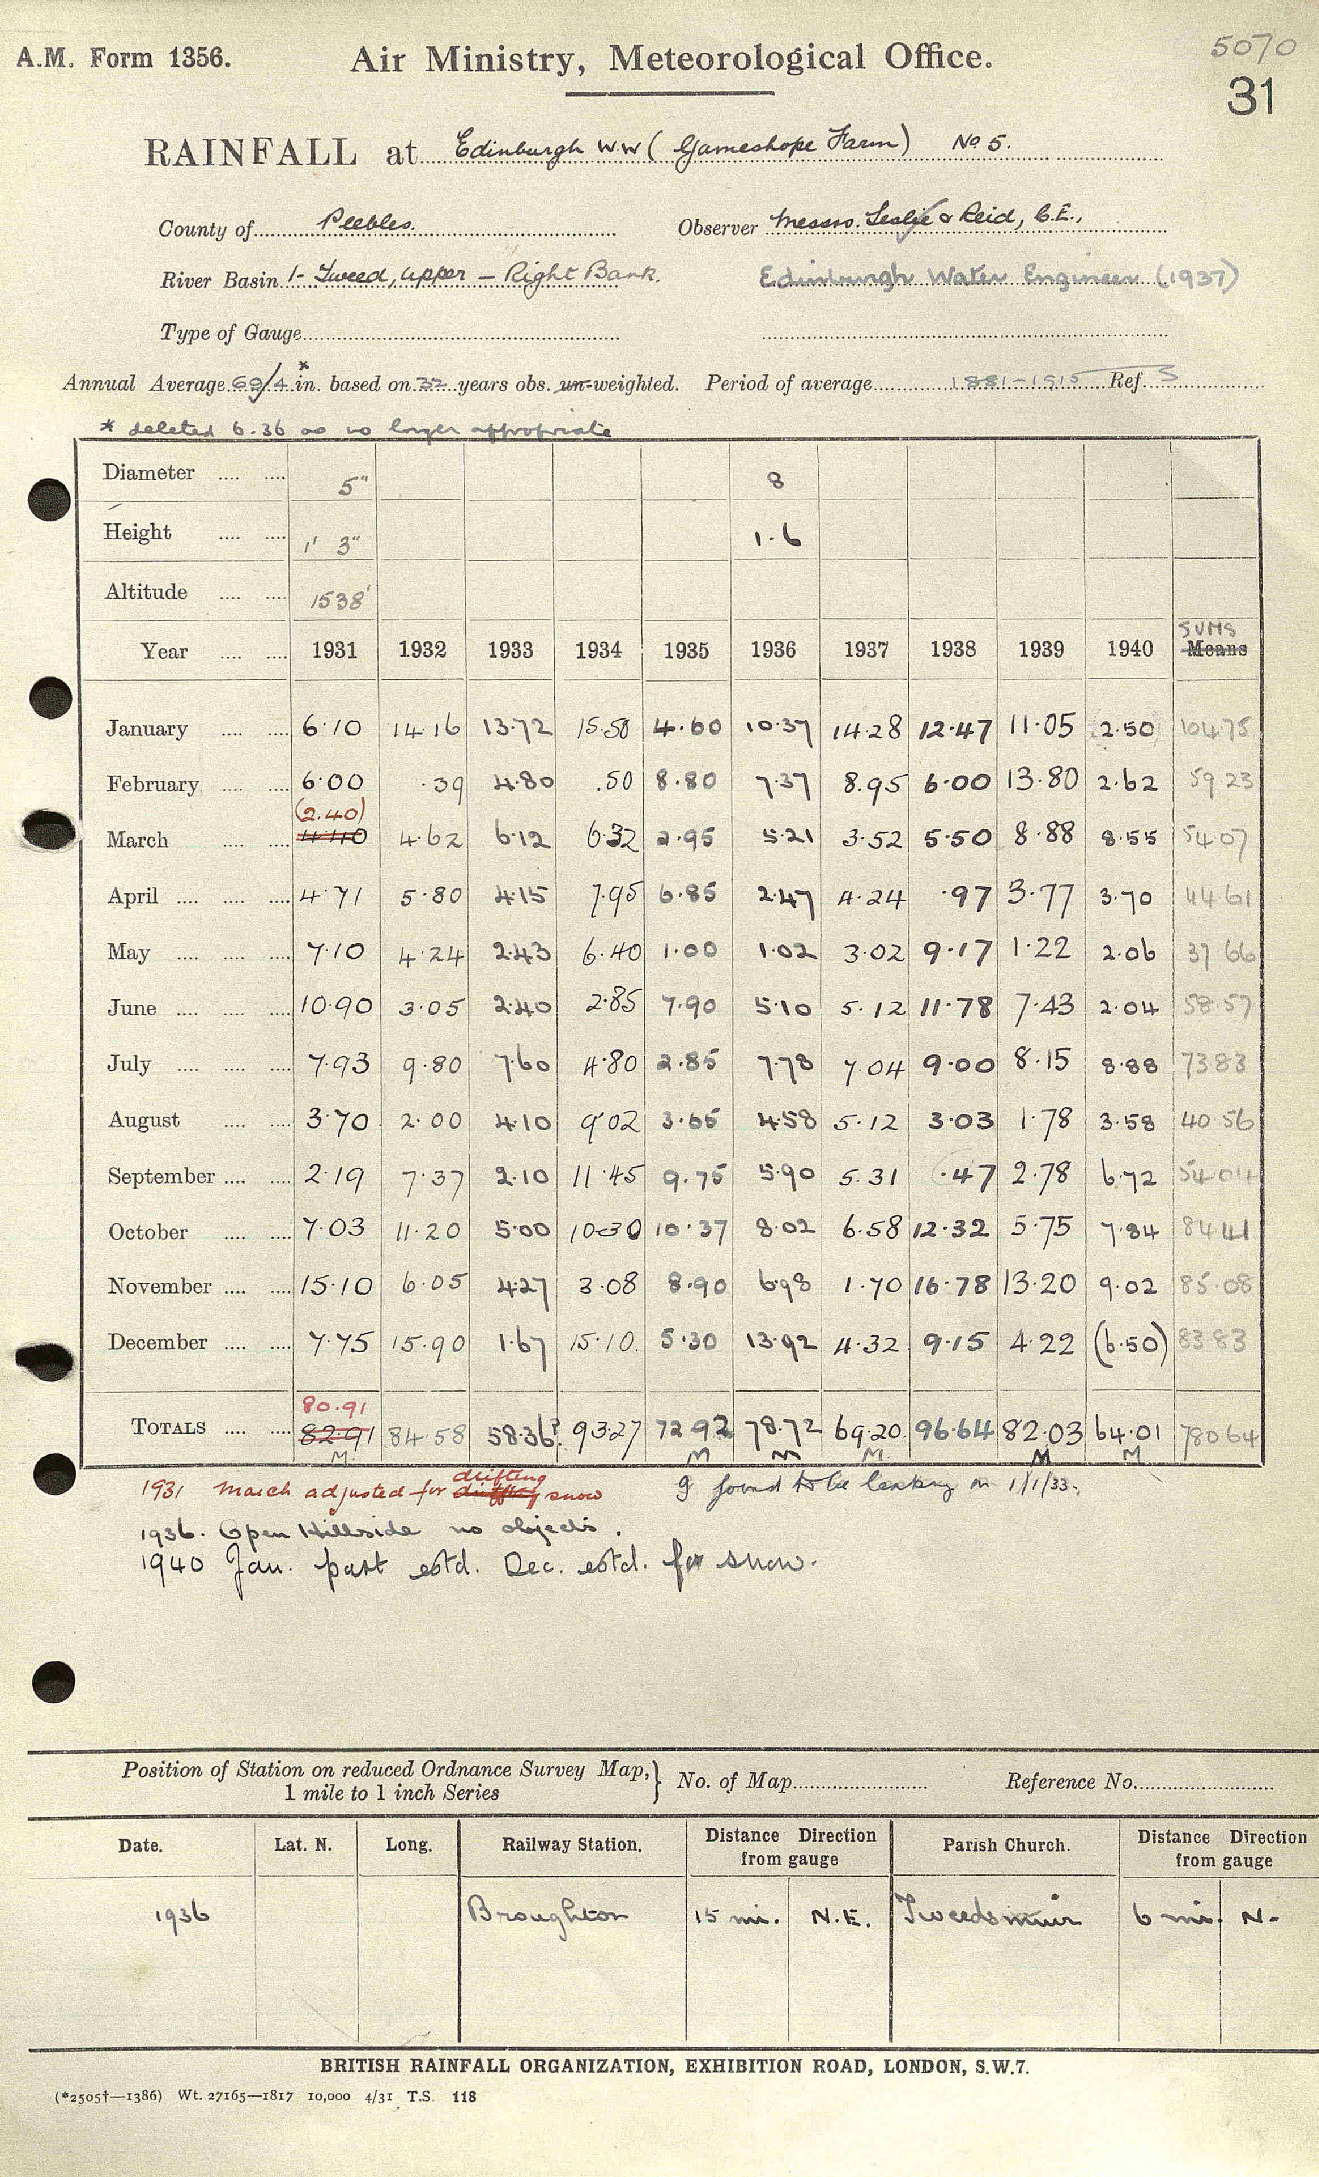 5070
A.M. Form 1356. Air Ministry, Meteorological Office.
31
RAINFALL at Edinburgh WW (Gameshope Farm) No 5.
County of Peebles. Observer Messrs. Leslie & Reid, C.E.,
River Basin 1- Tweed, upper - Right Bank. Edinburgh Water Engineer (1937)
Type of Gauge
Annual Average 69/4 * in. based on 32 years obs. un-weighted. Period of average 1881-1915 Ref 3
* deleted 6.36 as no longer appropriate
Diameter 5" 8
Height 1' 3" 1.6
Altitude 1538'
SUMS
Year 1931 1932 1933 1934 1935 1936 1937 1938 1939 1940 Means
January 6.10 14.16 13.72 15.50 4.60 10.37 14.28 12.47 11.05 2.50 104.75
February 6.00 .39 4.80 .50 8.80 7.37 8.95 6.00 13.80 2.62 59 23
(2.40)
March 4.40 4.62 6.12 6.32 2.95 5.21 3.52 5.50 8.88 8.55 54.07
April 4.71 5.80 4.15 7.95 6.85 2.47 4.24 .97 3.77 3.70 44 61
May 7.10 4.24 2.43 6.40 1.00 1.02 3.02 9.17 1.22 2.06 37 66
June 10.90 3.05 2.40 2.85 7.90 5.10 5.12 11.78 7.43 2.04 58.57
July 7.93 9.80 7.60 4.80 2.85 7.78 7.04 9.00 8.15 8.88 73 83
August 3.70 2.00 4.10 9.02 3.65 4.58 5.12 3.03 1.78 3.58 40 56
September 2.19 7.37 2.10 11.45 9.75 5.90 5.31 .47 2.78 6.72 54.04
October 7.03 11.20 5.00 10.30 10.37 8.02 6.58 12.32 5.75 7.84 84 41
November 15.10 6.05 4.27 3.08 8.90 6.98 1.70 16.78 13.20 9.02 85.08
December 7.75 15.90 1.67 15.10 5.30 13.92 4.32 9.15 4.22 (6.50) 83 83
80.91
TOTALS 82.91 84.58 58.36? 93.27 72 92 78.72 69.20 96.64 82.03 64.01 780 64
M M M M M M
1931 March adjusted for drifting snow found to be leaking on 1/1/33.
1936. Open Hillside no objects.
1940 Jan. part estd. Dec. estd. for snow.
Position of Station on reduced Ordnance Survey Map, } No. of Map Reference No.
1 mile to 1 inch Series
Date. Lat. N. Long. Railway Station. Distance Direction from gauge Parish Church. Distance Direction from gauge
1936 Broughton 15 mi. N.E. Tweedsmuir 6 mi. N.
BRITISH RAINFALL ORGANIZATION, EXHIBITION ROAD, LONDON, S.W.7.
(*2505†—1386) Wt. 27165—1817 10,000 4/31 T.S. 118